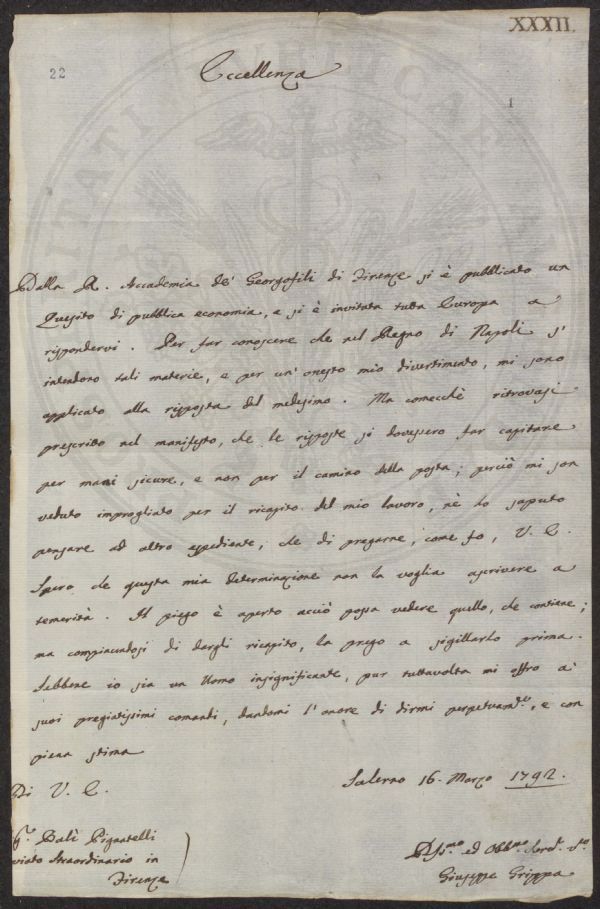 XXXII.
22
Eccellenza
1
Dalla R. Accademia de' Georgofili di Firenze si è pubblicato un
Quesito di pubblica economia, e si è invitata tutta Europa a
rispondervi. Per far conoscere che nel Regno di Napoli s'
intendono tali materie, e per un' onesto mio divertimento, mi sono
applicato alla risposta del medesimo. Ma comecchè ritrovasi
prescritto nel manifesto, che le risposte si dovessero far capitare
per mani sicure, e non per il camino della posta; perciò mi son
veduto improgliato per il ricapito del mio lavoro, nè ho saputo
pensare ad altro espediente, che di pregarne, come fo, V. E.
Spero che questa mia determinazione non la voglia ascrivere a
temerità. Il piego è aperto acciò possa vedere quello, che contiene;
ma compiacendosi di dargli ricapito, la prego a sigillarlo prima.
Sebbene io sia un Uomo insignificante, pur tuttavolta mi offro a'
suoi pregiatissimi comandi, dandomi l'onore di dirmi perpetuam.te, e con
piena stima
Di V. E.
Salerno 16. Marzo 1792.
Balì Pignatelli
Straordinario in
Firenze
ed Obb.mo
Giuseppe Grippa